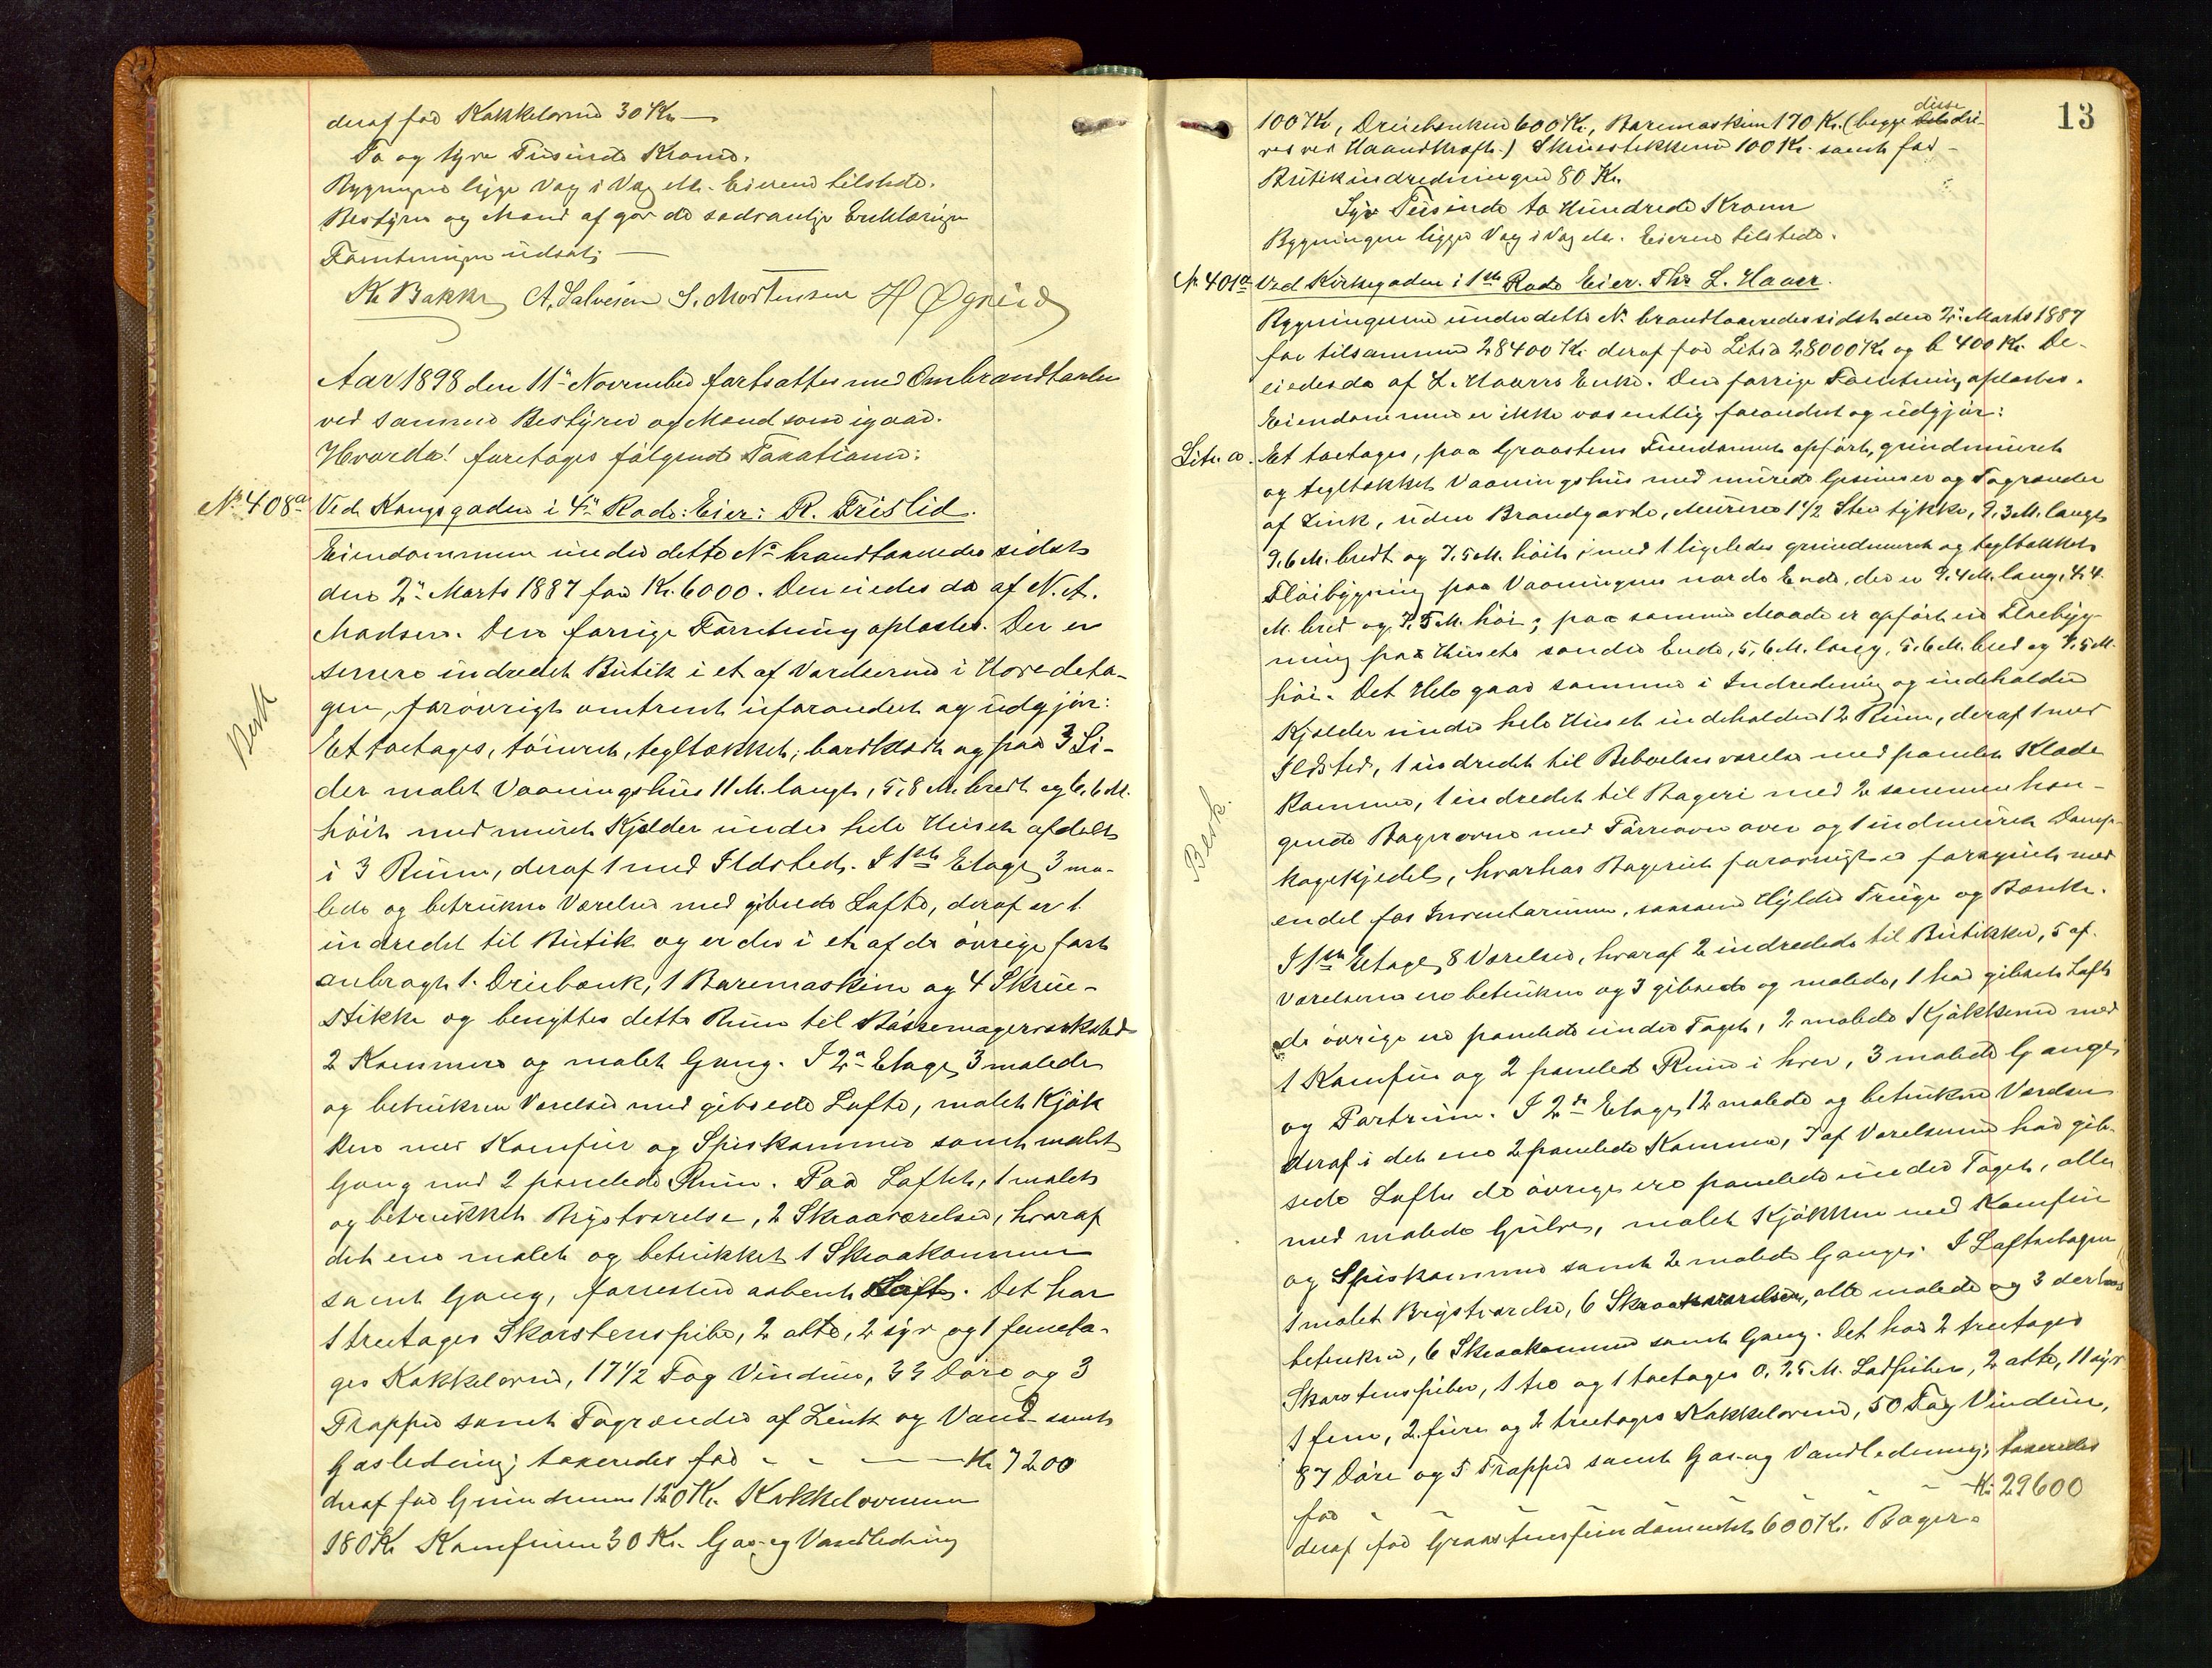 deraf for Kakkelovne 30 Kr —
To og tyve Tusinde Kroner.
Bygningen ligger Væg i Væg etc. Eieren tilstede.
Bestyrer og Mænd afgav de sædvanlige Erklæringer
Forretningen udsat; —
K. Bakke A. Salvesen S. Mortensen H Øgreid
Aar 1898 den 11te November fortsattes med Ombrandtaxten
ved samme Bestyrer og Mænd som igaar.
Hvorda! foretoges følgende Taxationer:
No 408a Ved Kongsgaden i 4de Rode: Eier: R. Frislid.
Eiendommen under dette No brandtaxeredes sidst
den 2den Marts 1887 for Kr. 6000. Den eiedes da af N. A.
Madsen. Den forrige Forretning oplæstes. Der er
senere indredet Butik i et af Værelserne i Hovedeta-
gen, forøvrigt omtrent uforandret og udgjør:
Et toetages, tømret, tegltækket, bordklædt og paa 3 Si-
der malet Vaaningshus 11 M. langt, 5,8 M. bredt og 6,6 M.
høit med muret Kjelder under hele Huset afdelt
i 3 Rum, deraf 1 med Ildsted. I 1ste Etage 3 ma-
lede og betrukne Værelser med gibsede Lofte, deraf er 1
indredet til Butik og er der i et af de øvrige fast
anbragt 1 Dreiebænk, 1 Boremaskine og 4 Skrue-
stikke og benyttes dette Rum til Bøssemagerværksted
2 Kammere og malet Gang. I 2den Etage 3 malede
og betrukken Værelser med gibsede Lofte, malet Kjøk
ken med Komfur og Spiskammer samt malet
Gang med 2 panelede Rum. Paa Loftet, 1 malet
og betrukket Brystværelse, 2 Skraaværelser, hvoraf
det ene malet og betrukket 1 Skraakammer
samt Gang, forresten aabent Loft. Det har
1 treetages Skorstenspibe, 2 otte, 2 syv og 1 femeta-
ges Kakkelovne, 17 1/2 Fag Vinduer, 33 Døre og 3
Trapper samt Tagrender af Zink og Vand- samt
Gasledning; taxeredes for - - — — Kr 7200
deraf for Grundmuren 120 Kr. Kakkelovnene
180 Kr Komfuren 30 Kr. Gas- og Vandledning
Besk
13
100 Kr, Dreiebænken 600 Kr., Boremaskinen 170 Kr. (begge disse dri-
ves ved Haandkraft.) Skruestikkerne 100 Kr. samt for
Butikindredningen 80 Kr.
Syv Tusinde to Hundrede Kroner
Bygningen ligger Væg i Væg etc. Eieren tilstede.
No 401a Ved Kirkegaden i 1ste Rode Eier. Thr L. Haaer.
Bygningerne under dette No brandtaxeredes sidst den 2den Marts 1887
for tilsammen 28400 Kr. deraf for Litr a 28000 Kr og b 400 Kr. De
eiedes da af L. Haaers Enke. Den forrige Forretning oplæstes.
Eiendommen er ikke væsentlig forandret og udgjør:
Litr. a. Et toetages, paa Graastens Fundament opført, grundmuret
og tegltækket Vaaningshus med murede Gesimser og Tagrender
af Zink, uden Brandgavle, Murene 1 1/2 Sten tykke, 9,3 M. langt
9,6 M. bredt og 7,5 M. høit; med 1 ligeledes grundmuret og tegltækket
Fløibygning paa Vaaningens nordre Ende, der er 9,4 M. lang, 4,4
M. bred og 7,5 M. høi; paa samme Maade er opført en Fløibyg-
ning paa Husets søndre Ende, 5,6 M. lang, 5,6 M. bred og 7,5 M.
høi. Det Hele gaar sammen i Indredning og indeholder
Kjelder under hele Huset indeholder 12 Rum, deraf 1 med
Ildsted, 1 indredet til Beboelsesværelse med panelet Klæde
kammer, 1 indredet til Bageri med 2 sammenhæn-
gende Bagerovne med Tørreovn over og 1 indmuret Damp-
kogekjedel, hvorhos Bageriet forøvrigt er forsynet med
endel fast Inventarium, saasom Hylder Truge og Bænke.
I 1ste Etage 8 Værelser, hvoraf 2 indredede til Butikker, 5 af
Værelserne er betrukne og 3 gibsede og malede, 1 har gibset Loft
de øvrige ere panelede under Taget, 2 malede Kjøkkener med
1 Komfur og 2 panelet Rum i hver, 3 malede Gange
og Portrum. I 2den Etage 12 malede og betrukne Værelser
deraf i det ene 2 panelede Kammer, 7 af Værelserne har gib-
sede Lofte de øvrige ere panelede under Taget, alle
med malede Gulve, malet Kjøkken med Komfur
og Spiskammer samt 2 malede Gange. I Loftsetagen
1 malet Brystværelse, 6 Skraaværelser, alle malede og 3 derhos
betrukne, 6 Skraakammer samt Gang. Det har 2 treetages
Skorstenspiber, 1 tre og 1 toetages 0,25 M. Ladpiber, 2 otte, 11 syv
1 fem, 2 fire og 2 treetages Kakkelovne, 50 Fag Vinduer,
87 Døre og 5 Trapper samt Gas- og Vandledning; taxeredes
for - - - - - Kr. 29600
deraf for Graastensfundamentet 600 Kr. Bager-
Besk.